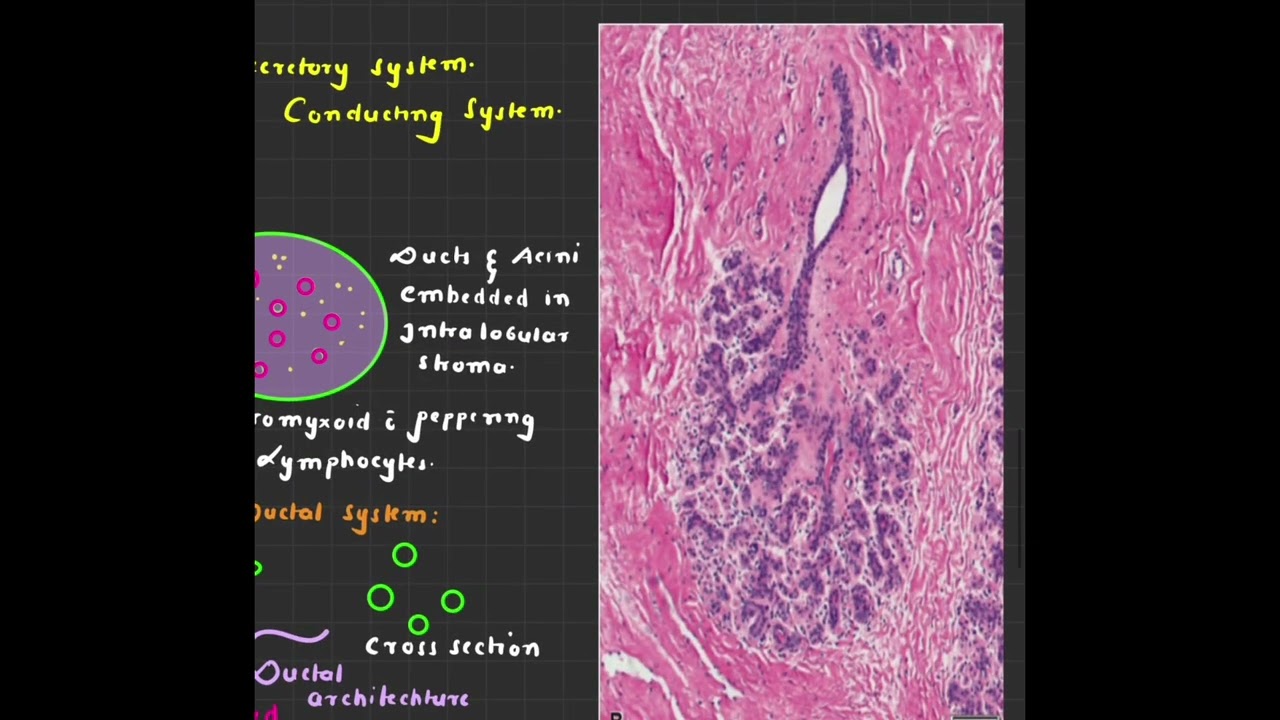 ecretory system.
Conducting System.
Ducts & Acini
embedded in
Intralobular
stroma.
romyxoid c̄ peppering
Lymphocytes.
Ductal system:
Cross section
Ductal
architechture
B